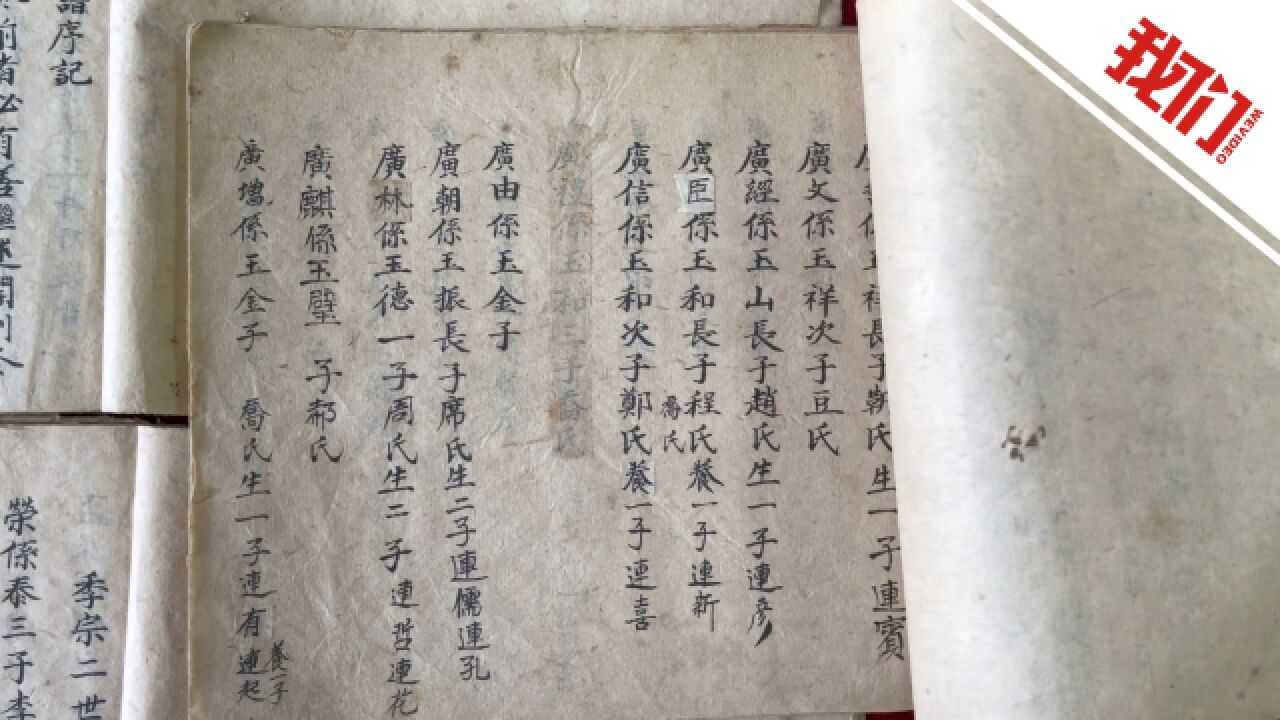 我们
WEVIDEO
長子
氏生一子連賓
廣文係玉祥次子豆氏
廣經係玉山長子趙氏生一子連彥
廣臣係玉和長子程氏養一子連新
喬氏
廣信係玉和次子鄭氏養一子連喜
廣 係玉和三子喬氏
廣由係玉金子
廣朝係玉振長子席氏生二子連儒連孔
廣林係玉德一子周氏生二子連哲連花
廣麒係玉璧 子郝氏
廣增係玉金子 喬氏生一子連有連起
養一子
譜序記
前 必有 繼述
季宗二世
榮係泰三子李